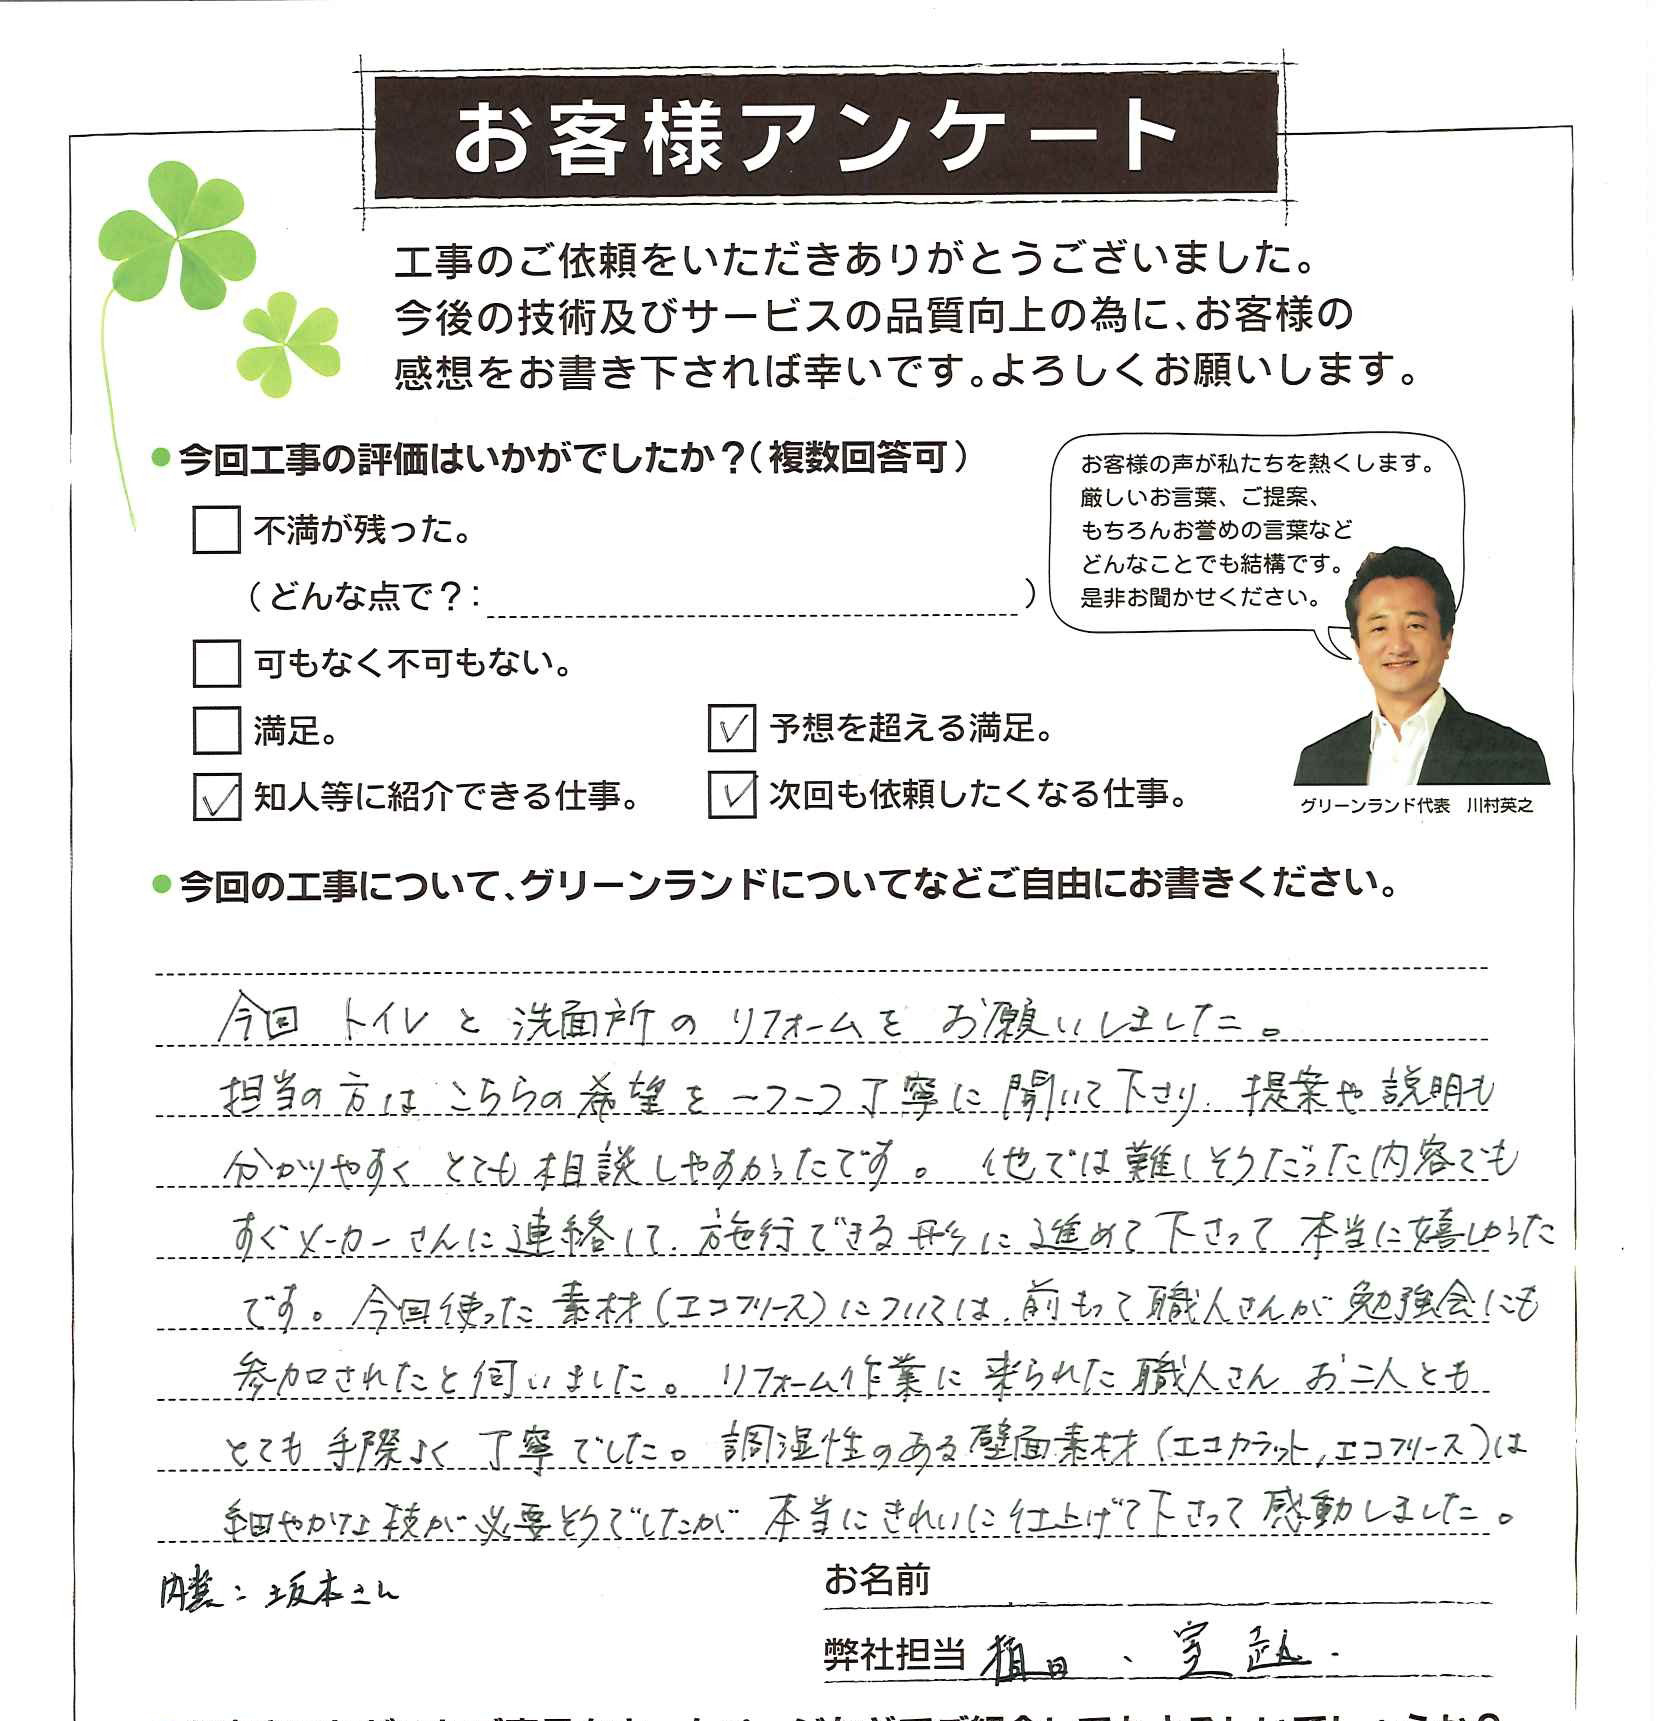 お客様アンケート
工事のご依頼をいただきありがとうございました。
今後の技術及びサービスの品質向上の為に、お客様の
感想をお書き下されば幸いです。よろしくお願いします。
今回工事の評価はいかがでしたか?(複数回答可)
お客様の声が私たちを熱くします。
厳しいお言葉、ご提案、
もちろんお誉めの言葉など
どんなことでも結構です。
是非お聞かせください。
不満が残った。
(どんな点で?: )
可もなく不可もない。
満足。
予想を超える満足。
知人等に紹介できる仕事。
次回も依頼したくなる仕事。
グリーンランド代表 川村英之
今回の工事について、グリーンランドについてなどご自由にお書きください。
今回 トイレと洗面所のリフォームを お願いしました。
担当の方は こちらの希望を 一つ一つ丁寧に 聞いて下さり、提案や説明も
分かりやすく とても相談しやすかったです。 他では難しそうだった内容でも
すぐメーカーさんに連絡して、施行できる形に進めて下さって 本当に嬉しかった
です。今回使った素材(エコフリース)については、前もって職人さんが勉強会にも
参加されたと伺いました。リフォーム作業に来られた職人さん お二人とも
とても手際よく 丁寧でした。調湿性のある壁面素材(エコカラット,エコフリース)は
細やかな技が必要そうでしたが 本当にきれいに仕上げて下さって感動しました。
内装:坂本さん
お名前
弊社担当 植田、